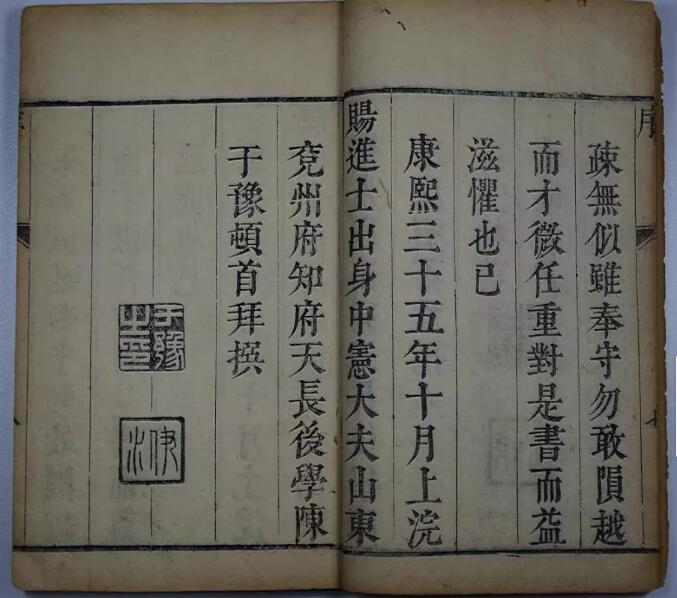 序
疎無似雖奉守勿敢隕越
而才微任重對是書而益
滋懼也已
康熙三十五年十月上浣
賜進士出身中憲大夫山東
兗州府知府天長後學陳
于豫頓首拜撰
于豫之印